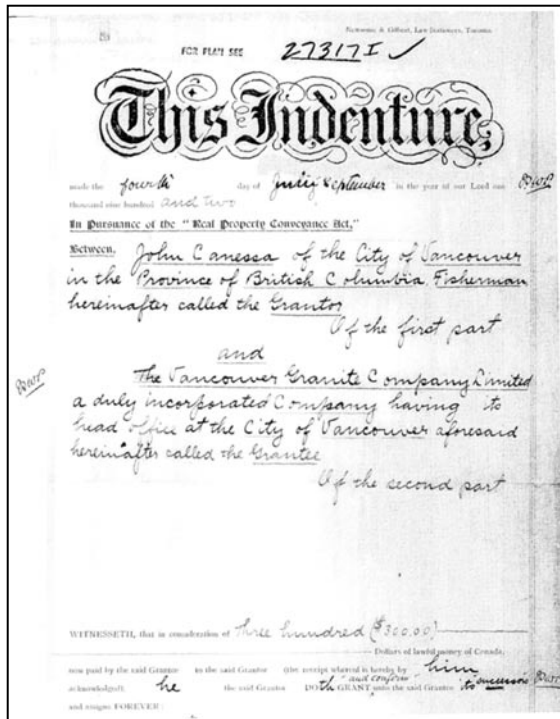 Newsome & Gilbert, Law Stationers, Toronto
FOR PLAN SEE 27317I ✓
This Indenture,
made the fourth day of July September in the year of our Lord one
thousand nine hundred and two
In Pursuance of the "Real Property Conveyance Act,"
Between, John Canessa of the City of Vancouver
in the Province of British Columbia, Fisherman
hereinafter called the Grantor
Of the first part
and
The Vancouver Granite Company Limited
a duly incorporated Company having its
head office at the City of Vancouver aforesaid
hereinafter called the Grantee
Of the second part
WITNESSETH, that in consideration of three hundred ($300.00)
Dollars of lawful money of Canada,
now paid by the said Grantee to the said Grantor (the receipt whereof is hereby by him
acknowledged), he the said Grantor DOth GRANT and confirm unto the said Grantee its successors
and assigns FOREVER: